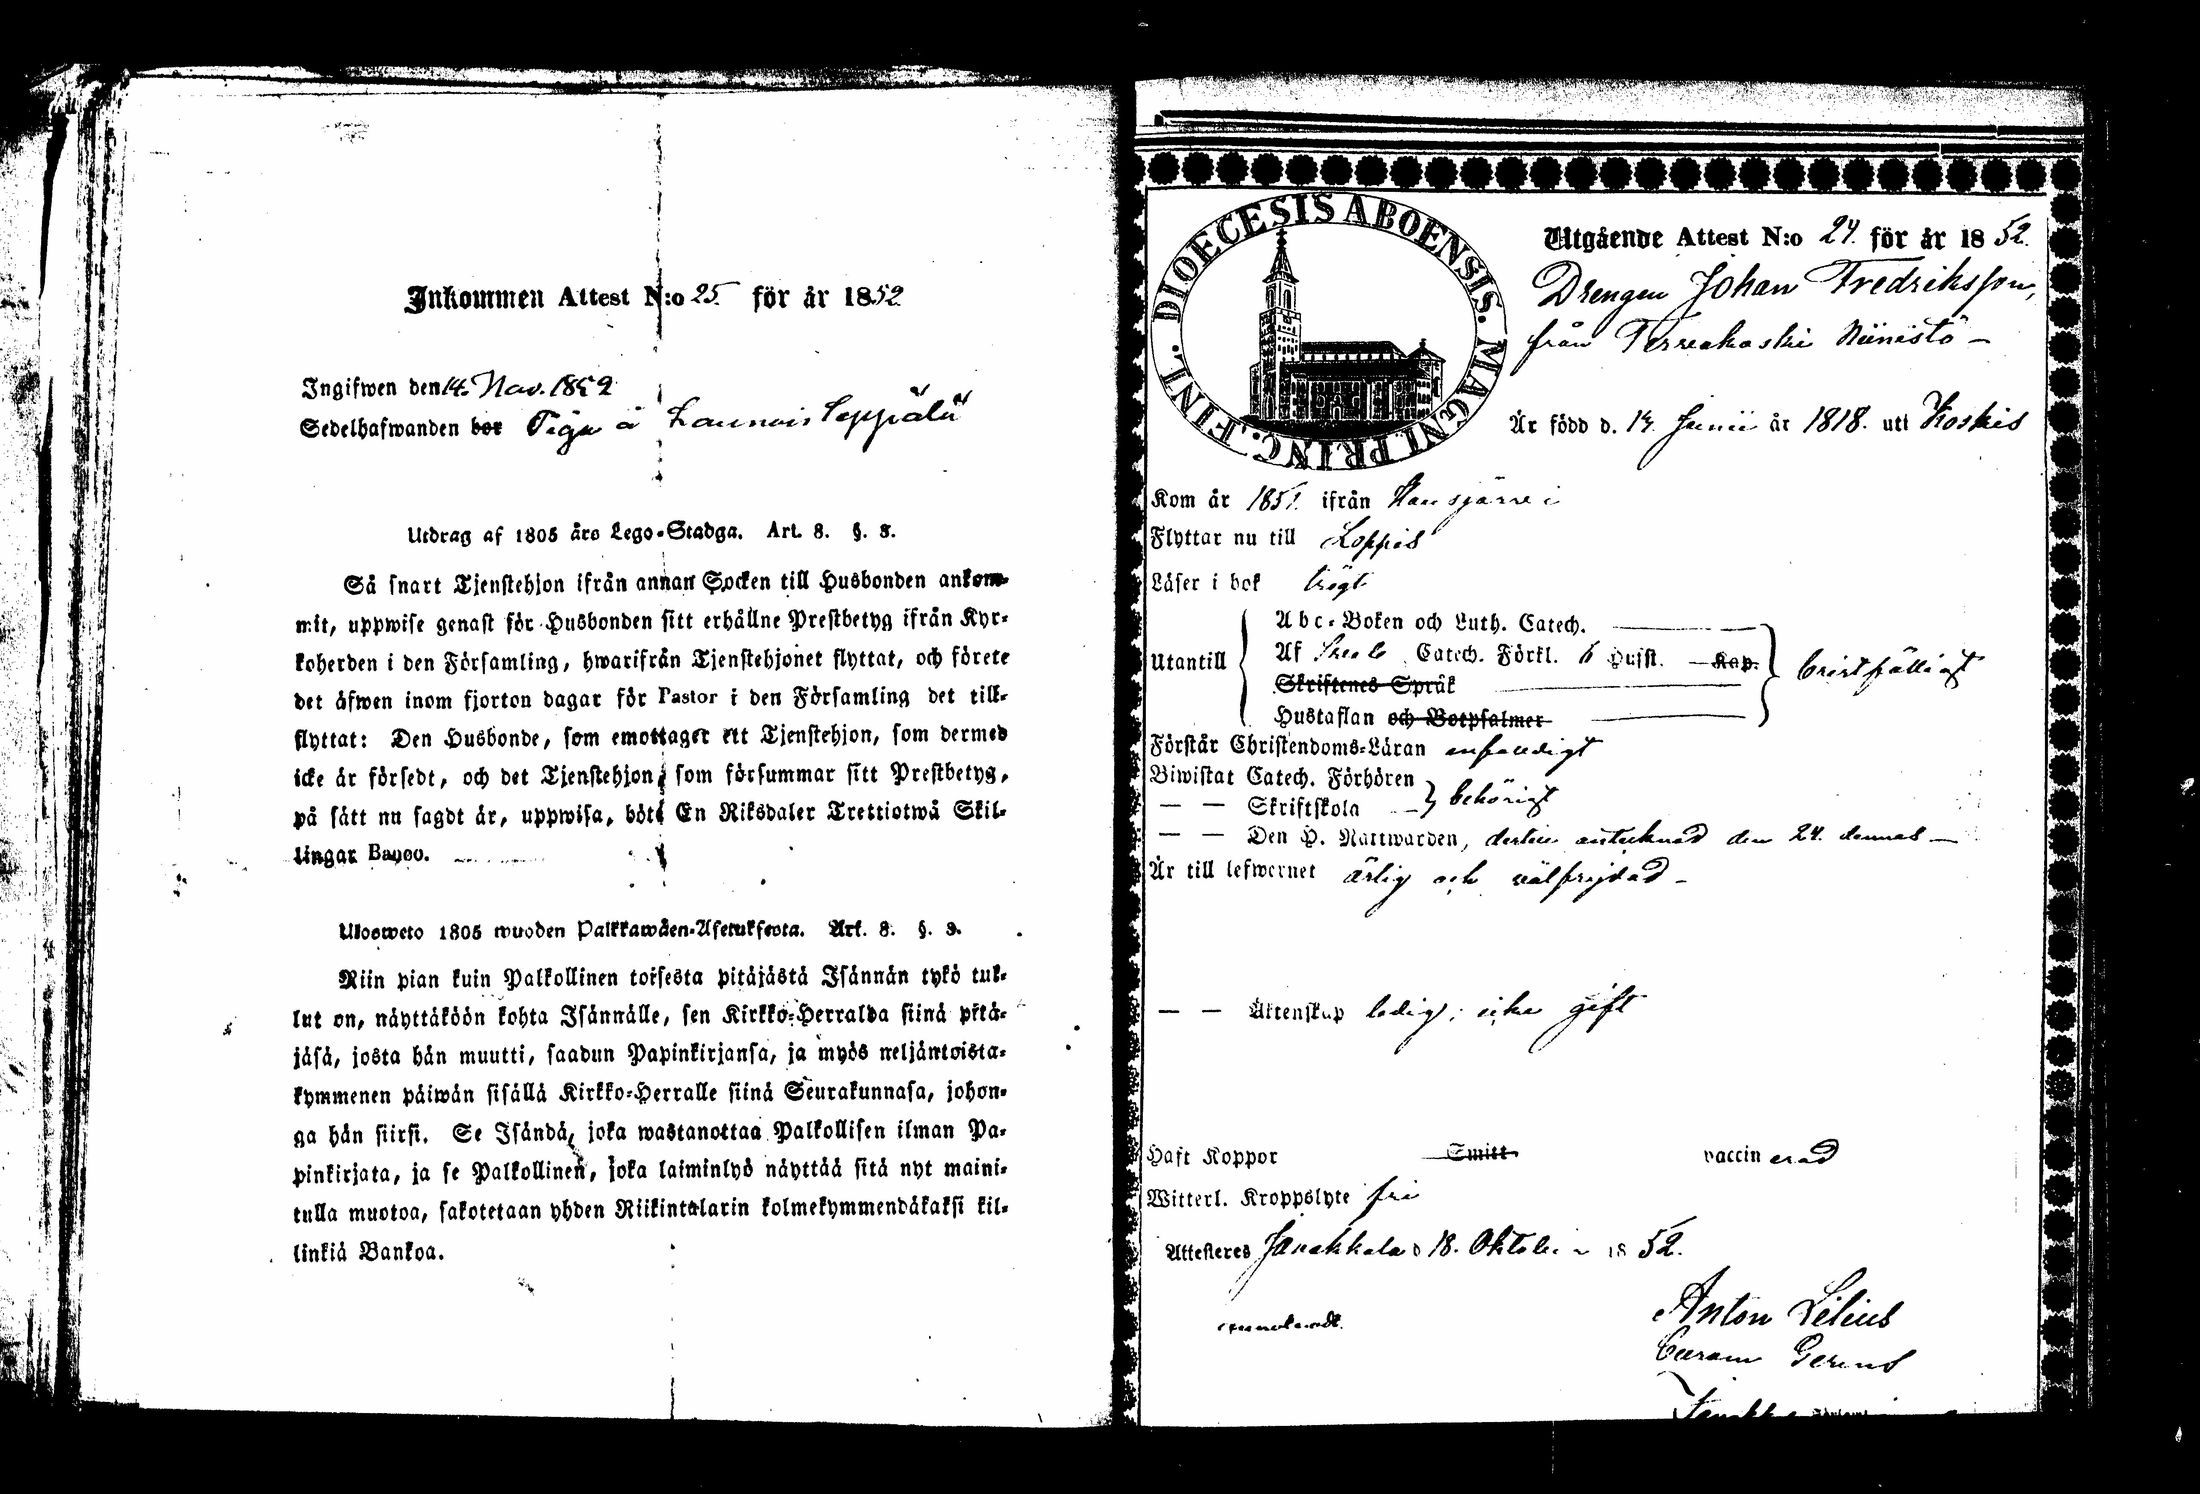 Inkommen Attest N:o 25 för år 1852
Ingifwen den 14. Nov. 1852
Sedelhafwanden bor Piga å Launois Seppälä
Utdrag af 1805 års Lego-Stadga. Art. 8. §. 3.
Så snart Tjenstehjon ifrån annan Socken till Husbonden ankom-
mit, uppwise genast för Husbonden sitt erhållne Prestbetyg ifrån Kyr-
koherden i den Församling, hwarifrån Tjenstehjonet flyttat, och förete
det äfwen inom fjorton dagar för Pastor i den Församling det till-
flyttat: Den Husbonde, som emottager ett Tjenstehjon, som dermed
icke är försedt, och det Tjenstehjon, som försummar sitt Prestbetyg,
på sätt nu sagdt är, uppwisa, böte En Riksdaler Trettiotwå Skil-
lingar Banco.
Ulosweto 1805 wuoden Palkkawäen-Asetuksesta. Art. 8. §. 3.
Niin pian kuin Palkollinen toisesta pitäjästä Isännän tykö tul-
lut on, näyttäköön kohta Isännälle, sen Kirkko-Herralda siinä pitä-
jäsä, josta hän muutti, saadun Papinkirjansa, ja myös neljäntoista-
kymmenen päiwän sisällä Kirkko-Herralle siinä Seurakunnasa, johon-
ga hän siirsi. Se Isändä, joka wastanottaa Palkollisen ilman Pa-
pinkirjata, ja se Palkollinen, joka laiminlyö näyttää sitä nyt maini-
tulla muotoa, sakotetaan yhden Riikintalarin kolmekymmendäkaksi kil-
linkiä Bankoa.
DIOECESIS ABOENSIS. MAGNI PRINC. FINL.
Utgående Attest N:o 24. för år 1852.
Drengen Johan Fredriksson,
från Terwakoski Niinistö –
Är född d. 14. Junii år 1818. uti Koskis
Kom år 1851. ifrån Hausjärwi
Flyttar nu till Loppis
Läser i bok trögt
Utantill
Abc-Boken och Luth. Catech.
Af Catech. Förkl. 6 Hufst. Kap.
Skriftenes Språk
Hustaflan och Botpsalmer
bristfälligt
Förstår Christendoms-Läran enfaldigt
Biwistat Catech. Förhören
— — Skriftskola
behörigt
— — Den H. Nattwarden, dertill antecknad den 24. dennes –
Är till lefwernet ärlig och wälfrejdad –
— — Äktenskap ledig; icke gift
Haft Koppor Smitt vaccinerad
Witterl. Kroppslyte fri
Attesteras Janakkala d 18. Oktober 1852.
Anton Lilius
Curam Gerens